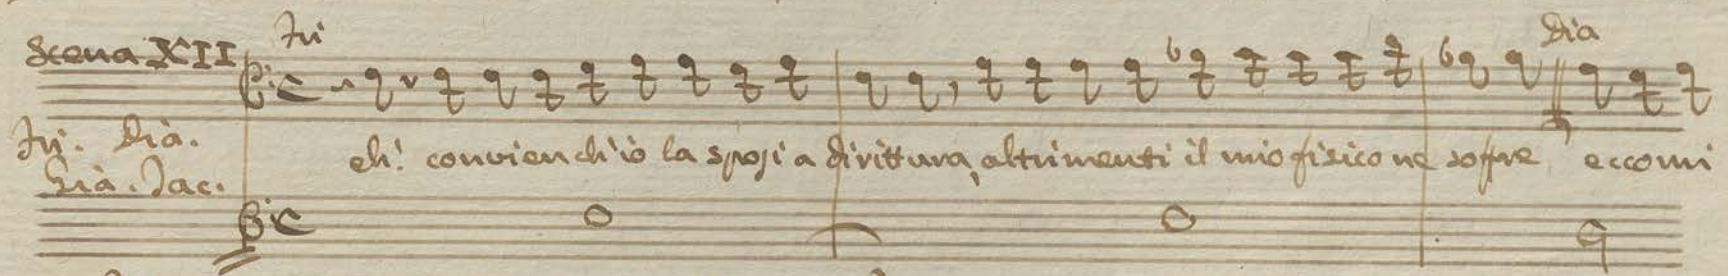 Scena XII
Tri
Dia
Tri. Dia.
Già. Jac.
eh! convien ch'io la sposi a dirittura, altrimenti il mio fisico ne soffre eccomi